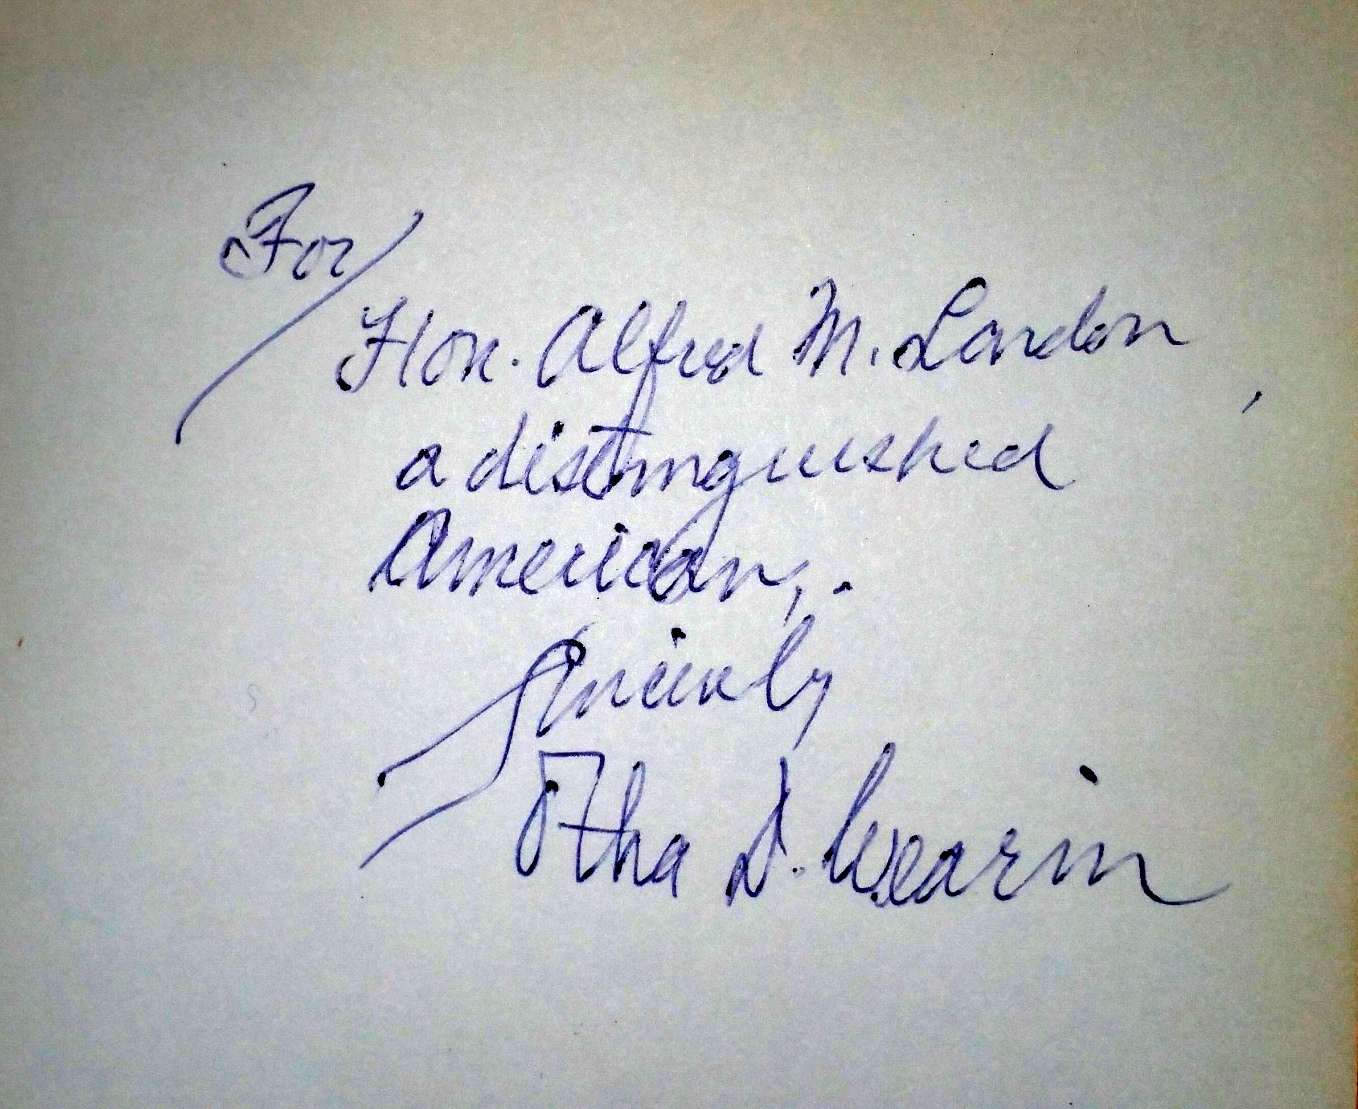 For
Hon. Alfred M. Landon,
a distinguished
American,.
Sincerely
Otha D. Wearin